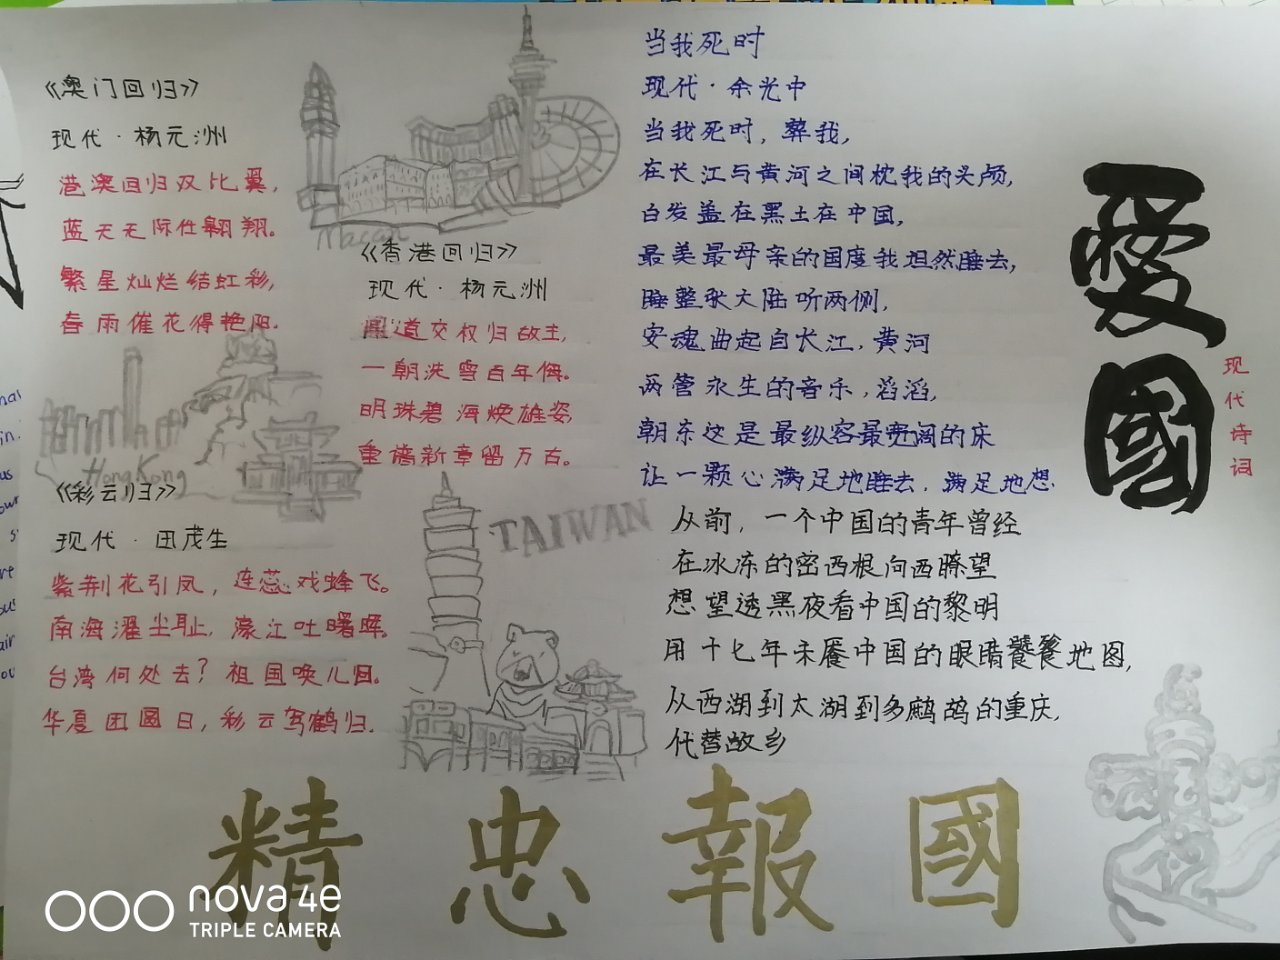 《澳门回归》
现代·杨元洲
港澳回归双比翼,
蓝天无际任翱翔。
繁星灿烂结虹彩,
春雨催花得艳阳.
Macau
《香港回归》
现代·杨元洲
道交权归故主,
一朝洗雪百年侮。
明珠碧海焕雄姿,
重谱新章留万古。
HongKong
《彩云归》
现代·田茂生
紫荆花引凤,连蕊戏蜂飞。
南海濯尘耻,濠江吐曙晖。
台湾何处去?祖国唤儿回。
华夏团圆日,彩云驾鹤归.
TAIWAN
当我死时
现代·余光中
当我死时,葬我,
在长江与黄河之间枕我的头颅,
白发盖在黑土在中国,
最美最母亲的国度我坦然睡去,
睡整张大陆听两侧,
安魂曲起自长江,黄河
两管永生的音乐,滔滔,
朝东这是最纵容最宽阔的床
让一颗心满足地睡去,满足地想
从前,一个中国的青年曾经
在冰冻的密西根向西瞭望
想望透黑夜看中国的黎明
用十七年未餍中国的眼睛饕餮地图,
从西湖到太湖到多鹧鸪的重庆,
代替故乡
愛國
现代诗词
精忠報國
nova 4e
TRIPLE CAMERA